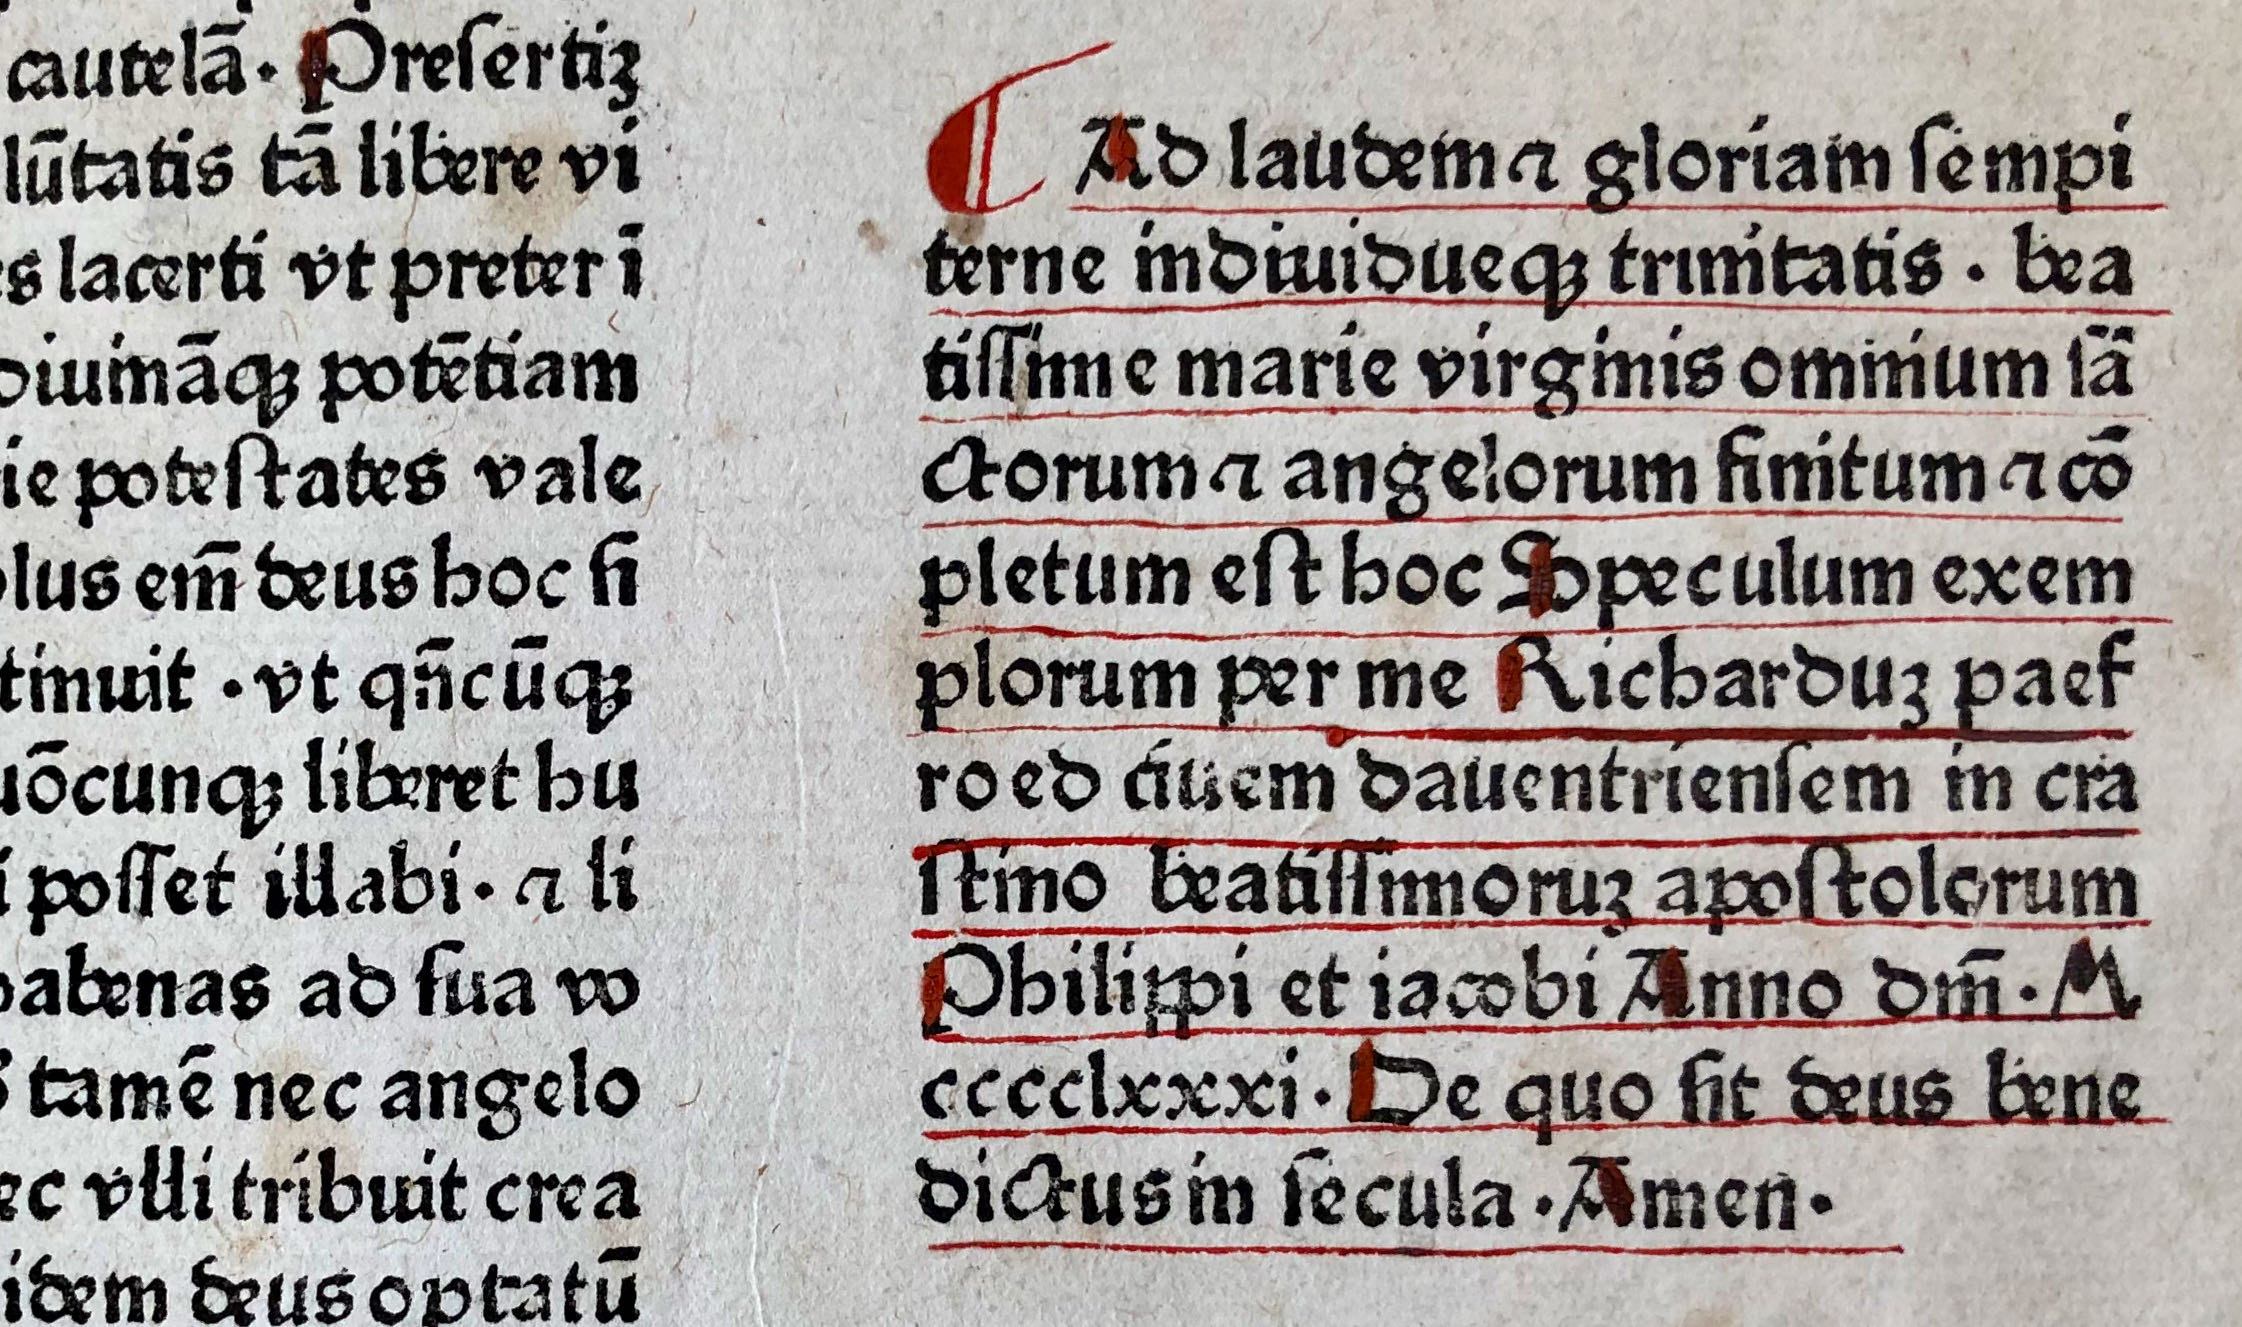 cautelã. Preſertiꝫ
lũtatis tã libere vi
es lacerti vt preter ĩ
diuinãqꝫ potẽtiam
ie poteſtates vale
olus em̃ deus hoc ſi
tinuit . vt qñcũqꝫ
uõcunqꝫ liberet hu
i poſſet illabi. ⁊ li
habenas ad ſua vo
tamẽ nec angelo
ec vlli tribuit crea
idem deus optatũ
Ad laudem ⁊ gloriam ſempi
terne indiuidueqꝫ trinitatis . bea
tiſſime marie virginis omnium ſã
ctorum ⁊ angelorum finitum ⁊ cõ
pletum eſt hoc Speculum exem
plorum per me Richarduꝫ paef
roed ciuem dauentrienſem in cra
ſtino beatiſſimoruꝫ apoſtolorum
Philippi et iacobi Anno dm̃ . M
cccclxxxi. De quo ſit deus bene
dictus in ſecula . Amen.